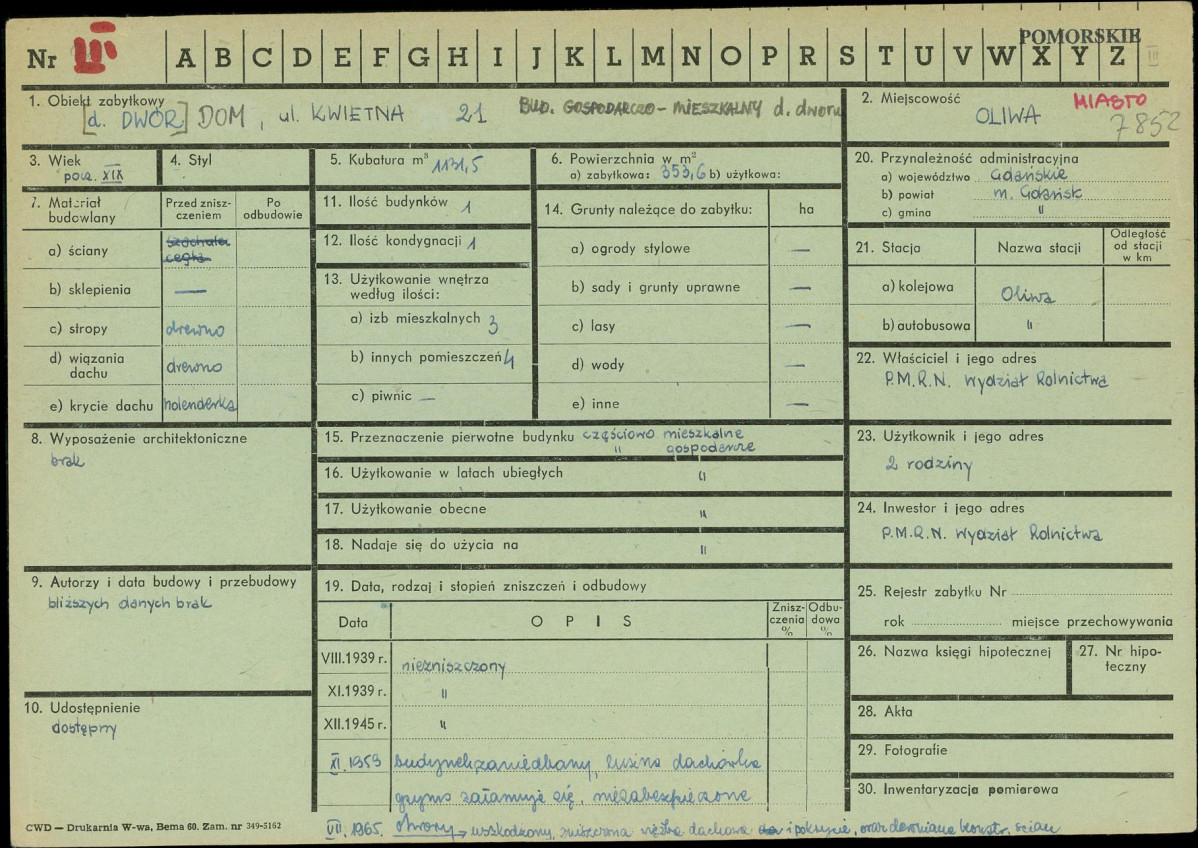 POMORSKIE
Nr III A B C D E F G H I J K L M N O P R S T U V W X Y Z III
1. Obiekt zabytkowy
[d. DWÓR] DOM, ul. KWIETNA 21 BUD. GOSPODARCZO-MIESZKALNY d. dworu
2. Miejscowość
OLIWA MIASTO
7852
3. Wiek
pocz. XIX
4. Styl
5. Kubatura m³
1131,5
6. Powierzchnia w m²
a) zabytkowa: 353,6 b) użytkowa:
7. Materiał budowlany
Przed zniszczeniem
Po odbudowie
a) ściany
szachulec
cegła
b) sklepienia —
c) stropy drewno
d) wiązania dachu drewno
e) krycie dachu holenderka
8. Wyposażenie architektoniczne
brak
9. Autorzy i data budowy i przebudowy
bliższych danych brak
10. Udostępnienie
dostępny
11. Ilość budynków 1
12. Ilość kondygnacji 1
13. Użytkowanie wnętrza
według ilości:
a) izb mieszkalnych 3
b) innych pomieszczeń 4
c) piwnic —
14. Grunty należące do zabytku: ha
a) ogrody stylowe —
b) sady i grunty uprawne —
c) lasy —
d) wody —
e) inne —
15. Przeznaczenie pierwotne budynku częściowo mieszkalne
" gospodarcze
16. Użytkowanie w latach ubiegłych "
17. Użytkowanie obecne "
18. Nadaje się do użycia na "
19. Data, rodzaj i stopień zniszczeń i odbudowy
Data OPIS Zniszczenia % Odbudowa %
VIII.1939 r. niezniszczony
XI.1939 r. "
XII.1945 r. "
XI.1959 budynek zaniedbany, luźna dachówka
gzyms załamuje się, niezabezpieczone
VII.1965. otwory, uszkodzony, zniszczona więźba dachowa i pokrycie, oraz drewniana konstr. ścian
20. Przynależność administracyjna
a) województwo Gdańskie
b) powiat m. Gdańsk
c) gmina "
21. Stacja Nazwa stacji Odległość od stacji w km
a) kolejowa Oliwa
b) autobusowa "
22. Właściciel i jego adres
P.M.R.N. Wydział Rolnictwa
23. Użytkownik i jego adres
2 rodziny
24. Inwestor i jego adres
P.M.R.N. Wydział Rolnictwa
25. Rejestr zabytku Nr
rok miejsce przechowywania
26. Nazwa księgi hipotecznej
27. Nr hipoteczny
28. Akta
29. Fotografie
30. Inwentaryzacja pomiarowa
CWD — Drukarnia W-wa, Bema 60. Zam. nr 349-5162